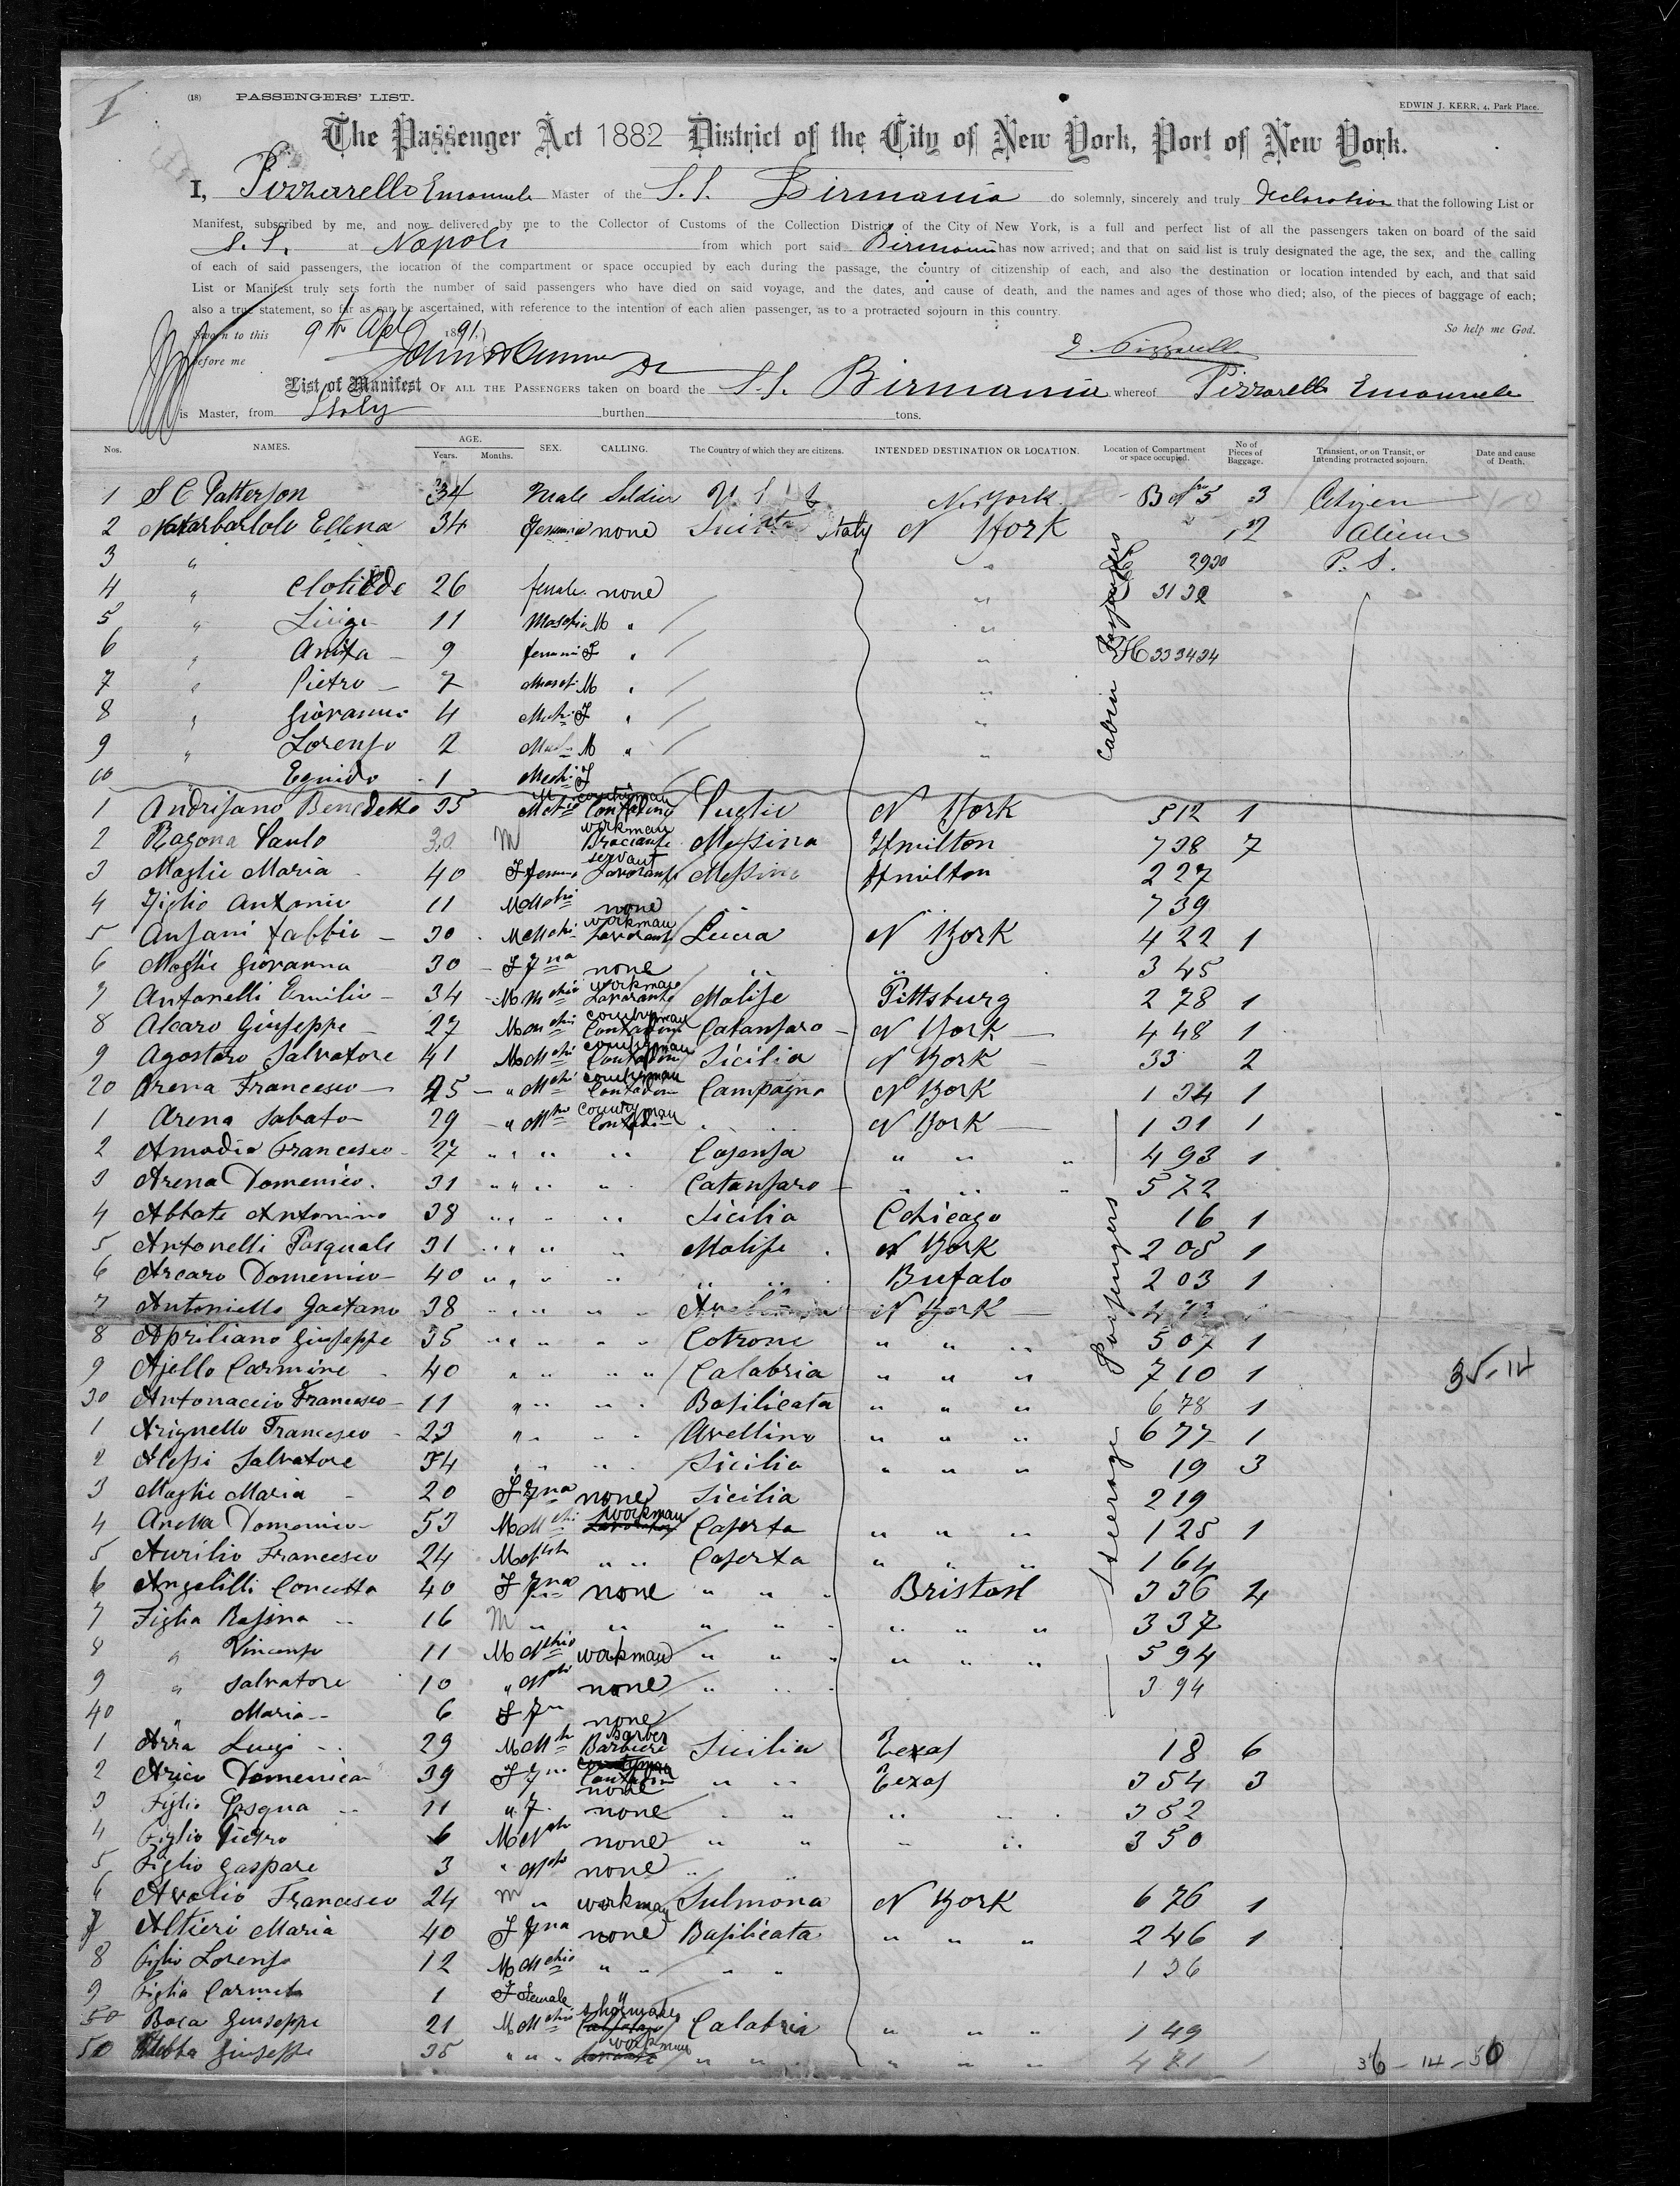 I
(18) PASSENGERS' LIST.
EDWIN J. KERR, 4, Park Place.
The Passenger Act 1882 District of the City of New York, Port of New York.
I, Pizzarello Emanuele Master of the S.S. Birmania do solemnly, sincerely and truly Declaration that the following List or
Manifest, subscribed by me, and now delivered by me to the Collector of Customs of the Collection District of the City of New York, is a full and perfect list of all the passengers taken on board of the said
S.S. at Napoli from which port said Birmania has now arrived; and that on said list is truly designated the age, the sex, and the calling
of each of said passengers, the location of the compartment or space occupied by each during the passage, the country of citizenship of each, and also the destination or location intended by each, and that said
List or Manifest truly sets forth the number of said passengers who have died on said voyage, and the dates, and cause of death, and the names and ages of those who died; also, of the pieces of baggage of each;
also a true statement, so far as can be ascertained, with reference to the intention of each alien passenger, as to a protracted sojourn in this country.
Sworn to this 9th Apl 1891. So help me God.
before me
List of Manifest OF ALL THE PASSENGERS taken on board the S.S. Birmania whereof Pizzarello Emanuele
is Master, from Italy burthen tons.
Nos. NAMES. AGE. Years. Months. SEX. CALLING. The Country of which they are citizens. INTENDED DESTINATION OR LOCATION. Location of Compartment or space occupied. No of Pieces of Baggage. Transient, or on Transit, or Intending protracted sojourn. Date and cause of Death.
1 S C Patterson 34 Male Soldier N. York 3 Citizen
2 Ellena 34 none Italy N York 12 Alien
3 " 2930 P. S.
4 " Clotilde 26 female none " 3132
5 " Luigi 11 M " "
6 " Anita 9 F " " 333434
7 " Pietro 7 M " "
8 " Giovanni 4 F " "
9 " Lorenzo 2 M " "
10 Egnido 1 F
Cabin Passengers
1 Andrisano Benedetto 35 M countryman Contadino Puglie N York 512 1
2 Ragona Paulo 30 M workman Braciante Messina Hmilton 738 7
3 Moglie Maria 40 F servant Messina Hmilton 227
4 Figlio Antonio 11 M none 739
5 Ansani Fabbio 30 M workman Lucca N York 422 1
6 Moglie Giovanna 30 F none " " 345
7 Antonelli Emilio 34 M workman Lavorante Molise Pittsburg 278 1
8 Alcaro Giuseppe 27 M countryman Contadin Catansaro N York 448 1
9 Agostaro Salvatore 41 M countryman Contadin Sicilia N York 33 2
20 Arena Francesco 25 " countryman Contadin Campagna N York 134 1
1 Arena Sabato 29 " countryman Contadin N York 131 1
2 Amodio Francesco 27 " " " Cosensa " " " 493 1
3 Arena Domenico 31 " " " Catansaro " " " 572
4 Abbate Antonino 38 " " " Sicilia Chicago 16 1
5 Antonelli Pasquale 31 " " " Molise N York 205 1
6 Arcaro Domenico 40 " " " " " Bufalo 203 1
7 Antoniello Gaetano 38 " " " N York
8 Apriliano Giuseppe 35 " " " Cotrone " " " 507 1
9 Ajello Carmine 40 " " " Calabria " " " 710 1
35-14
30 Antonaccio Francesco 11 " " " Basilicata " " " 678 1
1 Arignello Francesco 23 " " " Avellino " " " 677 1
2 Alessi Salvatore 34 " " " Sicilia " " " 19 3
3 Moglie Maria 20 F none Sicilia 219
4 Domenico 53 M workman Caserta " " " 125 1
5 Aurilio Francesco 24 M " " Caserta " " " 164
6 Angelilli Concetta 40 F none " " " Bristol 336 4
7 Figlia Rosina 16 M " " " " " " " " 337
8 " Vincenso 11 M workman " " " " " " 594
9 " Salvatore 10 " none " " " 394
40 " Maria 6 F none
Steerage Passengers
1 Arra Luigi 29 M Barber Barbiere Sicilia Texas 18 6
2 Arico Domenica 39 F Contadin none " " Texas 354 3
3 Figlio Pasqua 11 " F none " " " " 352
4 Figlio Pietro 6 M none " " " " 350
5 Figlio Gaspare 3 " none "
6 Avolio Francesco 24 M " workman Sulmona N York 676 1
7 Altieri Maria 40 F none Basilicata " " " 246 1
8 Figlio Lorenso 12 M " " " " 136
9 Figlia Carmela 1 F Female "
50 Giuseppe 21 M shoemaker Calabria " " " 149
50 Giuseppe 35 " " " workman " " " " " 481 1 36-14-50